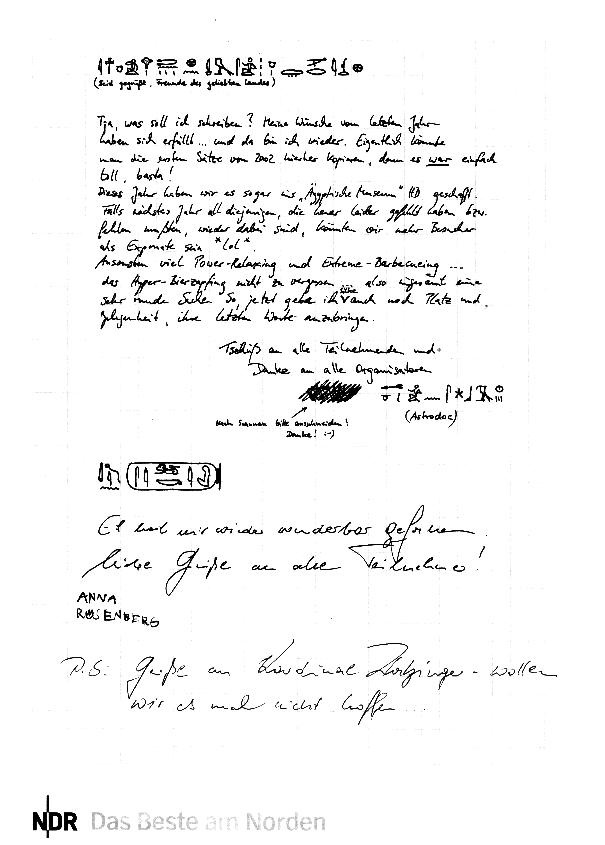 (Seid gegrüßt, Freunde des geliebten Landes)
Tja, was soll ich schreiben? Meine Wünsche vom letzten Jahr
haben sich erfüllt... und da bin ich wieder. Eigentlich könnte
man die ersten Sätze von 2002 hierher kopieren, denn es war einfach
toll, basta!
Dieses Jahr haben wir es sogar ins "Ägyptische Museum" HD geschafft.
Falls nächstes Jahr all diejenigen, die heuer leider gefehlt haben bzw.
fehlen mußten, wieder dabei sind, könnten wir mehr Besucher
als Exponate sein *lol*.
Ansonsten viel Power-Relaxing und Extreme-Barbecueing ...
das Hyper-Bierzapfing nicht zu vergessen also insgesamt eine
sehr runde Sache. So, jetzt gebe ich auch noch Platz und
Gelegenheit, ihre letzten Worte anzubringen.
Tschüß an alle Teilnehmenden und
Danke an alle Organisatoren
(Astrodoc)
Nach Scannen bitte
Danke! :-)
Es hat mir wieder wunderbar gefallen
liebe Grüße an alle Teilnehmer!
ANNA
ROSENBERG
P.S: Grüße an Kardinal Ratzinger - wollen
wir es mal nicht hoffen...
NDR Das Beste am Norden